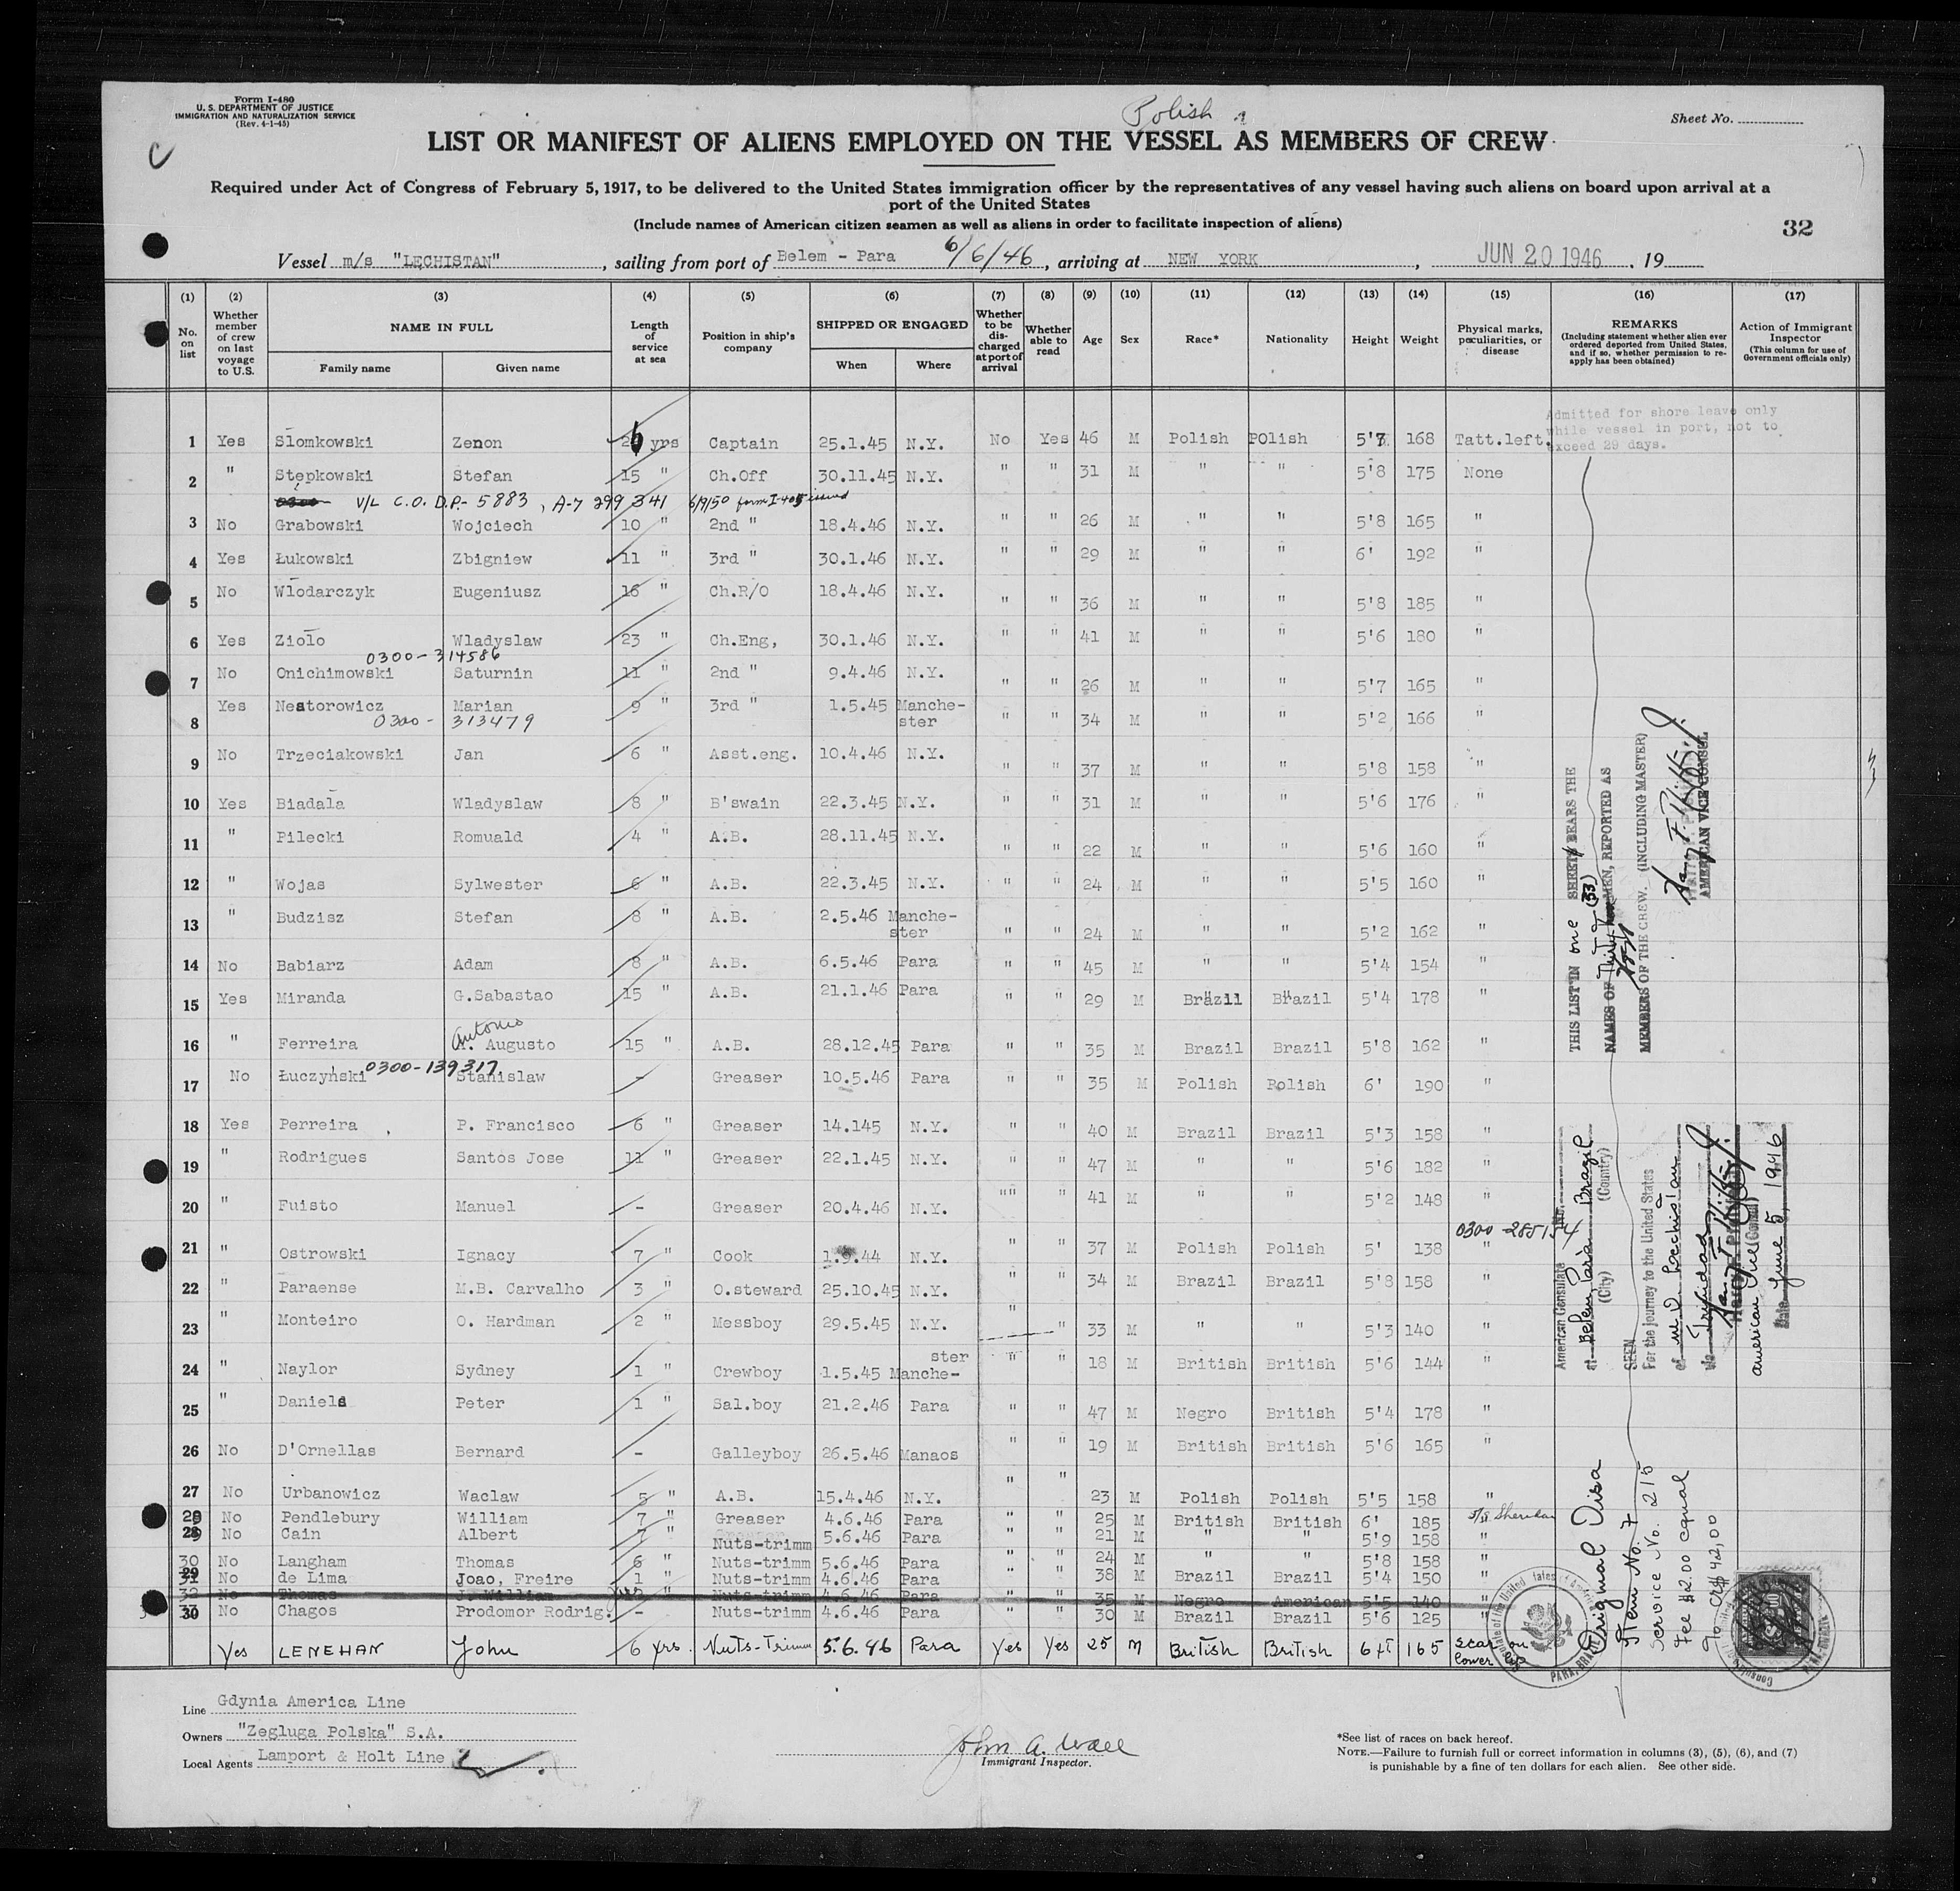 Form I-480
U. S. DEPARTMENT OF JUSTICE
IMMIGRATION AND NATURALIZATION SERVICE
(Rev. 4-1-45)
Polish
Sheet No.
LIST OR MANIFEST OF ALIENS EMPLOYED ON THE VESSEL AS MEMBERS OF CREW
Required under Act of Congress of February 5, 1917, to be delivered to the United States immigration officer by the representatives of any vessel having such aliens on board upon arrival at a
port of the United States
(Include names of American citizen seamen as well as aliens in order to facilitate inspection of aliens)
32
Vessel m/s "LECHISTAN", sailing from port of Belem - Para 6/6/46, arriving at NEW YORK, JUN 20 1946, 19
(1) (2) (3) (4) (5) (6) (7) (8) (9) (10) (11) (12) (13) (14) (15) (16) (17)
No. on list
Whether member of crew on last voyage to U.S.
NAME IN FULL
Family name Given name
Length of service at sea
Position in ship's company
SHIPPED OR ENGAGED
When Where
Whether to be discharged at port of arrival
Whether able to read
Age Sex Race* Nationality Height Weight
Physical marks, peculiarities, or disease
REMARKS
(Including statement whether alien ever ordered deported from United States, and if so, whether permission to reapply has been obtained)
Action of Immigrant Inspector
(This column for use of Government officials only)
Admitted for shore leave only
while vessel in port, not to
exceed 29 days.
1 Yes Slomkowski Zenon 26 yrs Captain 25.1.45 N.Y. No Yes 46 M Polish POlish 5'7 168 Tatt.left.
2 " Stępkowski Stefan 15 " Ch.Off 30.11.45 N.Y. " " 31 M " " 5'8 175 None
V/L C.O. D.P.- 5883, A-7 299 341 6/9/50 form I-405 issued
3 No Grabowski Wojciech 10 " 2nd " 18.4.46 N.Y. " " 26 M " " 5'8 165 "
4 Yes Łukowski Zbigniew 11 " 3rd " 30.1.46 N.Y. " " 29 M " " 6' 192 "
5 No Wlodarczyk Eugeniusz 16 " Ch.R/O 18.4.46 N.Y. " " 36 M " " 5'8 185 "
6 Yes Ziolo Wladyslaw 23 " Ch.Eng, 30.1.46 N.Y. " " 41 M " " 5'6 180 "
0300-314586
7 No Onichimowski Saturnin 11 " 2nd " 9.4.46 N.Y. " " 26 M " " 5'7 165 "
8 Yes Nestorowicz Marian 9 " 3rd " 1.5.45 Manchester " " 34 M " " 5'2 166 "
0300- 313479
9 No Trzeciakowski Jan 6 " Asst.eng. 10.4.46 N.Y. " " 37 M " " 5'8 158 "
10 Yes Biadala Wladyslaw 8 " B'swain 22.3.45 N.Y. " " 31 M " " 5'6 176 "
11 " Pilecki Romuald 4 " A.B. 28.11.45 N.Y. " " 22 M " " 5'6 160 "
12 " Wojas Sylwester 6 " A.B. 22.3.45 N.Y. " " 24 M " " 5'5 160 "
13 " Budzisz Stefan 8 " A.B. 2.5.46 Manchester " " 24 M " " 5'2 162 "
14 No Babiarz Adam 8 " A.B. 6.5.46 Para " " 45 M " " 5'4 154 "
15 Yes Miranda G.Sabastao 15 " A.B. 21.1.46 Para " " 29 M Brazil Brazil 5'4 178 "
16 " Ferreira Antonio A. Augusto 15 " A.B. 28.12.45 Para " " 35 M Brazil Brazil 5'8 162 "
0300-139317
17 No Łuczyński Stanislaw - Greaser 10.5.46 Para " " 35 M Polish Polish 6' 190 "
18 Yes Perreira P. Francisco 6 " Greaser 14.145 N.Y. " " 40 M Brazil Brazil 5'3 158 "
19 " Rodrigues Santos Jose 11 " Greaser 22.1.45 N.Y. " " 47 M " " 5'6 182 "
20 " Fuisto Manuel - Greaser 20.4.46 N.Y. "" " 41 M " " 5'2 148 "
0300-285154
21 " Ostrowski Ignacy 7 " Cook 1.9.44 N.Y. " " 37 M Polish Polish 5' 138 "
22 " Paraense M.B. Carvalho 3 " O.steward 25.10.45 N.Y. " " 34 M Brazil Brazil 5'8 158 "
23 " Monteiro O. Hardman 2 " Messboy 29.5.45 N.Y. " " 33 M " " 5'3 140 "
24 " Naylor Sydney 1 " Crewboy 1.5.45 Manchester " " 18 M British British 5'6 144 "
25 " Daniels Peter 1 " Sal.boy 21.2.46 Para " " 47 M Negro British 5'4 178 "
26 No D'Ornellas Bernard - Galleyboy 26.5.46 Manaos " " 19 M British British 5'6 165 "
27 No Urbanowicz Waclaw 5 " A.B. 15.4.46 N.Y. " " 23 M Polish Polish 5'5 158 "
28 No Pendlebury William 7 " Greaser 4.6.46 Para " " 25 M British British 6' 185
29 No Cain Albert 7 " Nuts-trimm 5.6.46 Para " " 21 M " " 5'9 158 "
30 No Langham Thomas 6 " Nuts-trimm 5.6.46 Para " " 24 M " " 5'8 158 "
31 No de Lima Joao, Freire 1 " Nuts-trimm 4.6.46 Para " " 38 M Brazil Brazil 5'4 150 "
32 No Thomas J. William Nuts-trimm 4.6.46 Para " " 35 M Negro American 5'5 140 "
30 No Chagos Prodomor Rodrig. - Nuts-trimm 4.6.46 Para " " 30 M Brazil Brazil 5'6 125 "
Yes LENEHAN John 6 yrs. Nuts-Trimm 5.6.46 Para Yes Yes 25 M British British 6 ft 165 Scar on lower
THIS LIST IN one SHEET BEARS THE
NAMES OF Thirty (33) MEN, REPORTED AS
MEMBERS OF THE CREW. (INCLUDING MASTER)
AMERICAN VICE CONSUL
American Consulate
at Belem, Pará Brazil
(City) (Country)
SEEN
For the journey to the United States
of m.v. Lechistan
via Trinidad
American Vice Consul
Date June 5, 1946
Original Visa
Item No. 7
Service No. 215
Fee $2.00 equal
To Cr$ 42,00
Line Gdynia America Line
Owners "Zegluga Polska" S.A.
Local Agents Lamport & Holt Line
John A. Wall
Immigrant Inspector.
*See list of races on back hereof.
NOTE.—Failure to furnish full or correct information in columns (3), (5), (6), and (7)
is punishable by a fine of ten dollars for each alien. See other side.